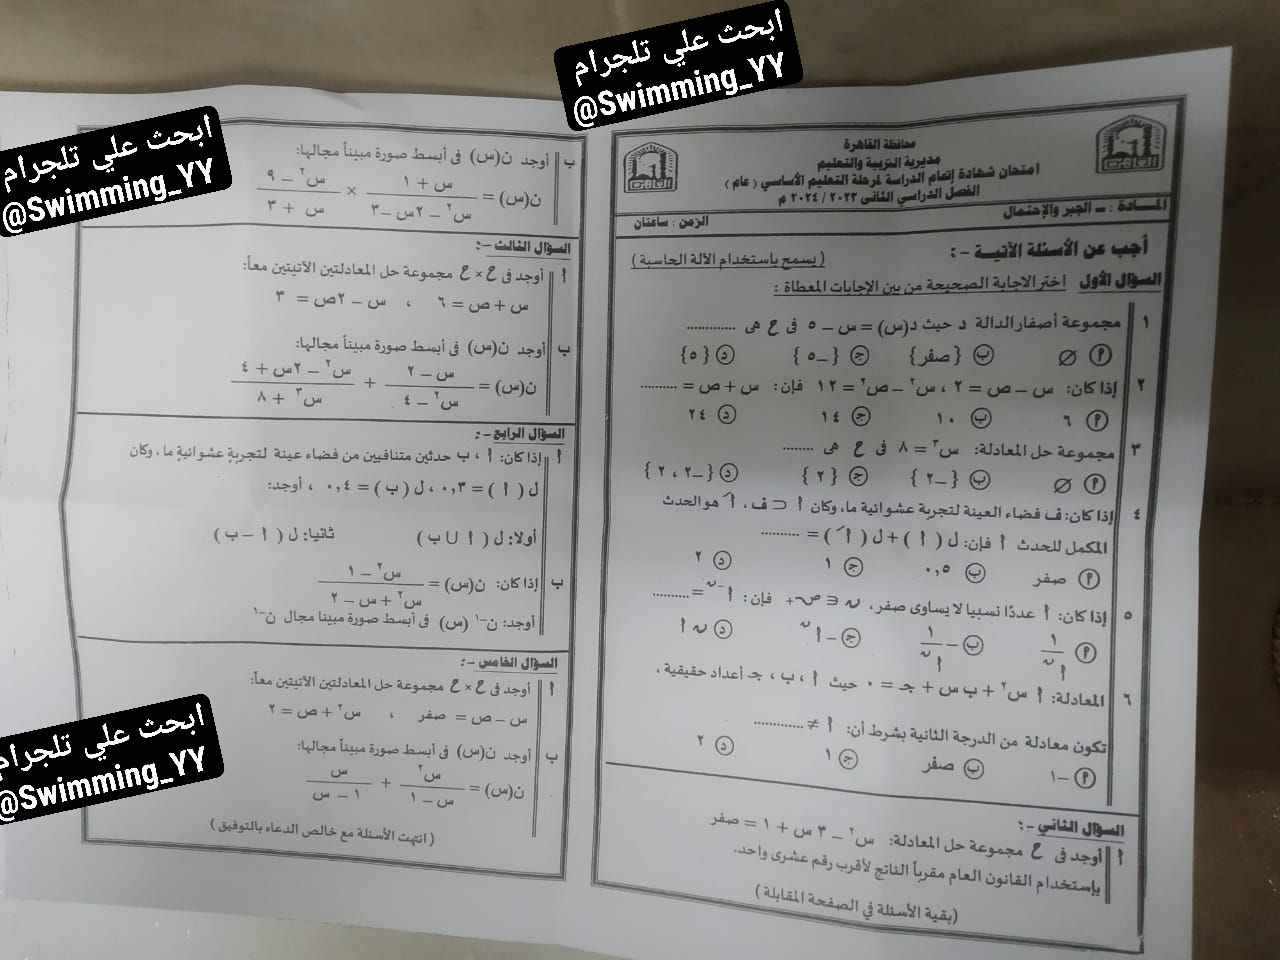 ابحث علي تلجرام
@Swimming_YY
ابحث علي تلجرام
@Swimming_YY
ابحث علي تلجرام
@Swimming_YY
محافظة القاهرة
مديرية التربية والتعليم
امتحان شهادة إتمام الدراسة لمرحلة التعليم الأساسي ( عام )
الفصل الدراسي الثاني ٢٠٢٣ / ٢٠٢٤ م
المــادة : ــ الجبر والإحتمال
الزمن : ساعتان
أجب عن الأسئلة الآتيـة -:
( يسمح باستخدام الآلة الحاسبة )
السؤال الأول اختر الاجابة الصحيحة من بين الإجابات المعطاة :
١ مجموعة أصفار الدالة د حيث د(س) = س – ٥ فى ح هى ............
أ ∅ ب { صفر } ج { –٥ } د { ٥ }
٢ إذا كان: س – ص = ٢ ، س٢ – ص٢ = ١٢ فإن: س + ص = .........
أ ٦ ب ١٠ ج ١٤ د ٢٤
٣ مجموعة حل المعادلة: س٣ = ٨ فى ح هى ........
أ ∅ ب { –٢ } ج { ٢ } د { –٢ ، ٢ }
٤ إذا كان: ف فضاء العينة لتجربة عشوائية ما، وكان أ ⊂ ف ، أَ هو الحدث
المكمل للحدث أ فإن: ل ( أ ) + ل ( أَ ) = .........
أ صفر ب ٠,٥ ج ١ د ٢
٥ إذا كان: أ عددًا نسبيا لا يساوى صفر، ن ∈ ص+ فإن: أ–ن = .........
أ ١/أن ب – ١/أن ج – أن د ن أ
٦ المعادلة: أ س٢ + ب س + جـ = ٠ حيث أ ، ب ، جـ أعداد حقيقية ،
تكون معادلة من الدرجة الثانية بشرط أن: أ ≠ ............
أ –١ ب صفر ج ١ د ٢
السؤال الثاني -:
أ أوجد فى ح مجموعة حل المعادلة: س٢ – ٣ س + ١ = صفر
بإستخدام القانون العام مقرباً الناتج لأقرب رقم عشرى واحد.
(بقية الأسئلة في الصفحة المقابلة)
ب أوجد ن(س) فى أبسط صورة مبيناً مجالها:
ن(س) = س + ١ / س٢ – ٢س –٣ × س٢ – ٩ / س + ٣
السؤال الثالث -:
أ أوجد فى ح × ح مجموعة حل المعادلتين الآتيتين معاً:
س + ص = ٦ ، س – ٢ص = ٣
ب أوجد ن(س) فى أبسط صورة مبيناً مجالها:
ن(س) = س – ٢ / س٢ – ٤ + س٢ – ٢س + ٤ / س٣ + ٨
السؤال الرابع -:
أ إذا كان: أ ، ب حدثين متنافيين من فضاء عينة لتجربة عشوائية ما، وكان
ل ( أ ) = ٠,٣ ، ل ( ب ) = ٠,٤ ، أوجد:
أولا: ل ( أ ∪ ب ) ثانيا: ل ( أ – ب )
ب إذا كان: ن(س) = س٢ – ١ / س٢ + س – ٢
أوجد: ن–١ (س) فى أبسط صورة مبينا مجال ن–١
السؤال الخامس -:
أ أوجد فى ح × ح مجموعة حل المعادلتين الآتيتين معاً:
س – ص = صفر ، س٢ + ص = ٢
ب أوجد ن(س) فى أبسط صورة مبيناً مجالها:
ن(س) = س٢ / س – ١ + س / ١ – س
( انتهت الأسئلة مع خالص الدعاء بالتوفيق )